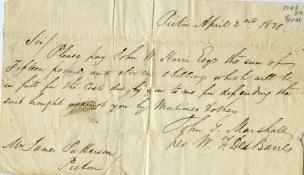 Pictou April 2nd 18
Sir
Please pay John W. Harris Esqr the sum of
Fifteen pounds and eleven shillings which will be
in full for the Costs due by you to me for defending the
suit brought against you by Mortimer
John J. Marshall
per W. F. DesBarres
Mr James Patterson
Pictou